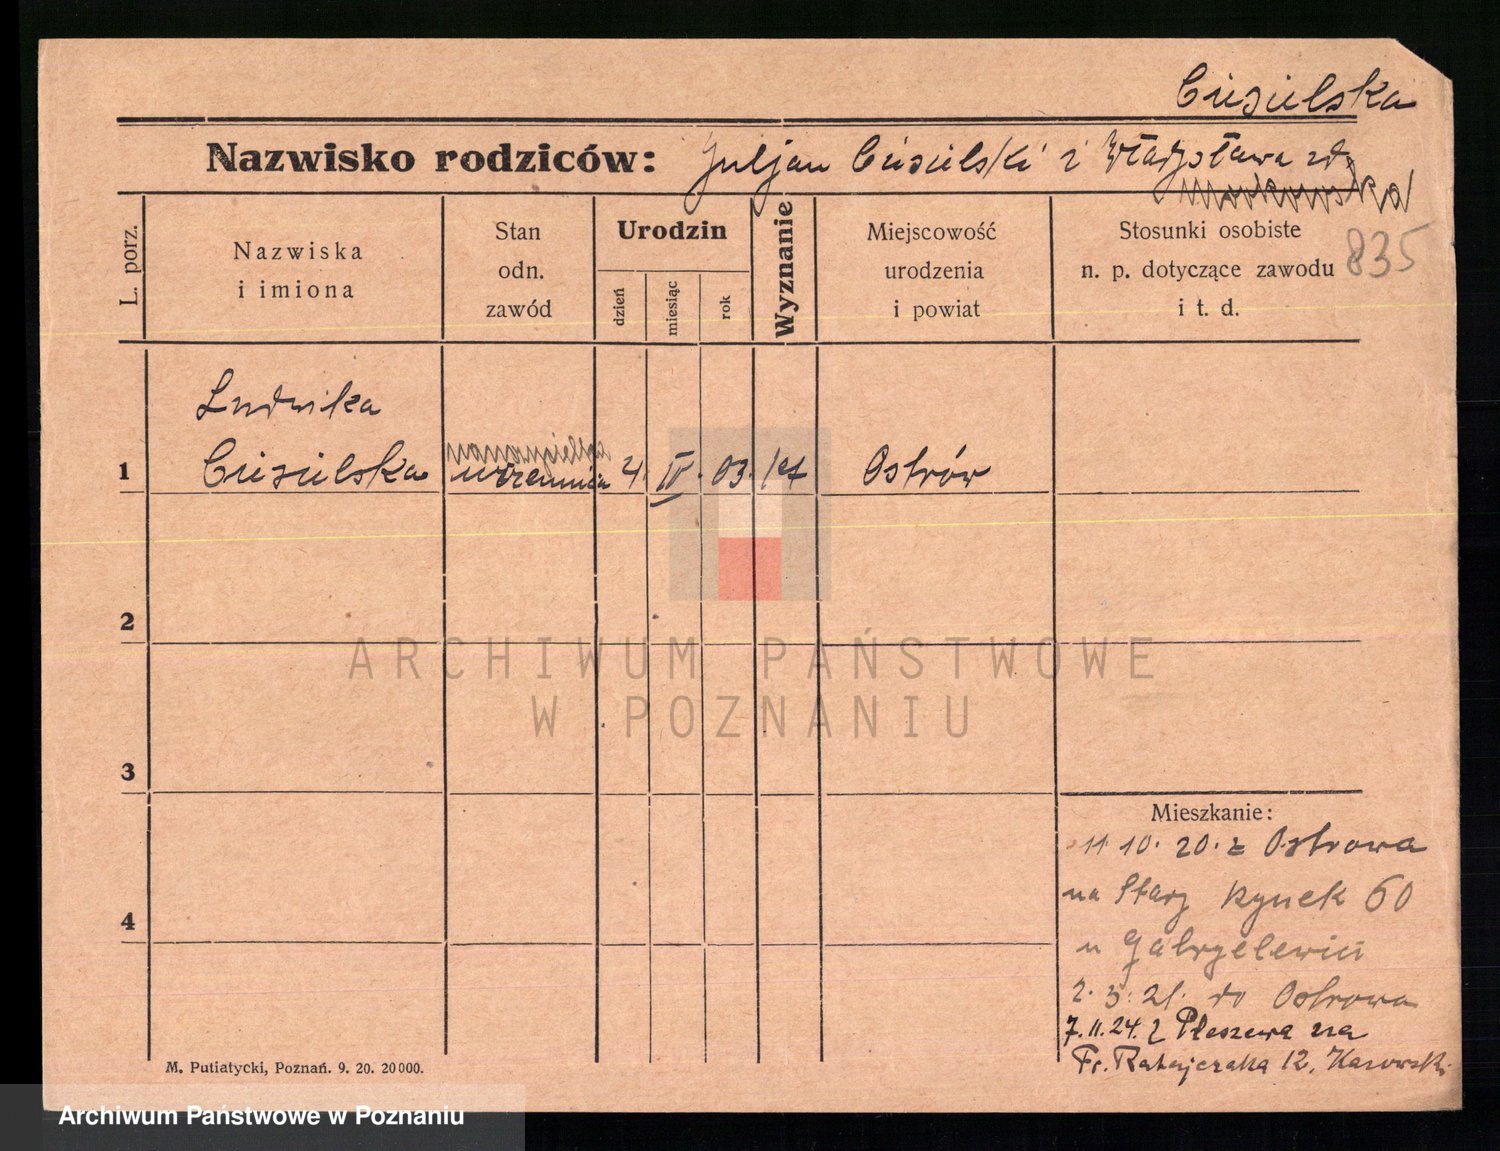 Ciesielska
Nazwisko rodziców: Juljan Ciesielski i Władysława zd.
L. porz.
Nazwiska
i imiona
Stan
odn.
zawód
Urodzin
dzień
miesiąc
rok
Wyznanie
Miejscowość
urodzenia
i powiat
Stosunki osobiste
n. p. dotyczące zawodu
i t. d.
835
Ludwika
1 Ciesielska uczennica 4 IV. 03. kat Ostrów
2
3
4
Mieszkanie:
11 10. 20. z Ostrowa
na Stary Rynek 60
u Gabryelewicz
2. 3. 21. do Ostrowa
7. 11. 24. z Pleszewa na
Fr. Ratajczaka 12,
M. Putiatycki, Poznań. 9. 20. 20000.
ARCHIWUM PAŃSTWOWE
W POZNANIU
Archiwum Państwowe w Poznaniu